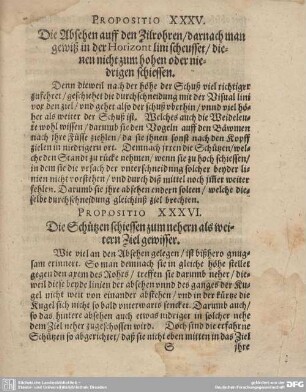 PROPOSITIO XXXV.
Die Absehen auff den Zilrohren/ darnach man
gewiß in der Horizont lini scheusset/ die-
nen nicht zum hohen oder nie-
drigen schiessen.
Denn dieweil nach der höhe der Schuß viel richtiger
zukehret/ geschiehet die durchschneidung mit der Visual lini
vor den ziel/ und gehet also der schuß uberhin/ unnd viel höh
her als weiter der Schuß ist. Welches auch die Weideleu-
te wohl wissen/ darumb sie den Vogeln auff den Bäwmen
nach ihr Füsse zielen/ da sie ihnen sonst nach den Kopff
zielen in niedrigern ort. Demnach irren die Schützen/ wel-
che den Standt zu rücke nehmen/ wenn sie zu hoch schiessen/
in dem sie die ursach der unterschneidung solcher beyder li-
nien nicht verstehen/ und durch diß mittel noch weiter
fehlen. Darumb sie ihre absehen endern solten/ welche die-
selbe durchschneidung gleichist ziel brechten.
PROPOSITIO XXXVI.
Die Schützen schiessen zum nehern als wei-
tern Ziel gewisser.
Wie viel an den Absehen gelegen/ ist bißhero gnug-
sam erinnert. So man demnach sie in gleiche höhe stellet
gegen den axem des Rohrs/ treffen sie darumb neher/ die-
weil diese beyde linien der absehen unnd des ganges der Ku-
gel nicht weit von einander absehen/ und in der kürtze die
Kugel sich nicht so bald unterwarts sencket. Darumb auch/
so das hintere absehen auch etwas nidriger in solcher nehe
dem Ziel neher zugeschossen wird. Doch sind die erfahrne
Schützen so abgerichtet/ daß sie nicht eben mitten in das Ziel
S ihre